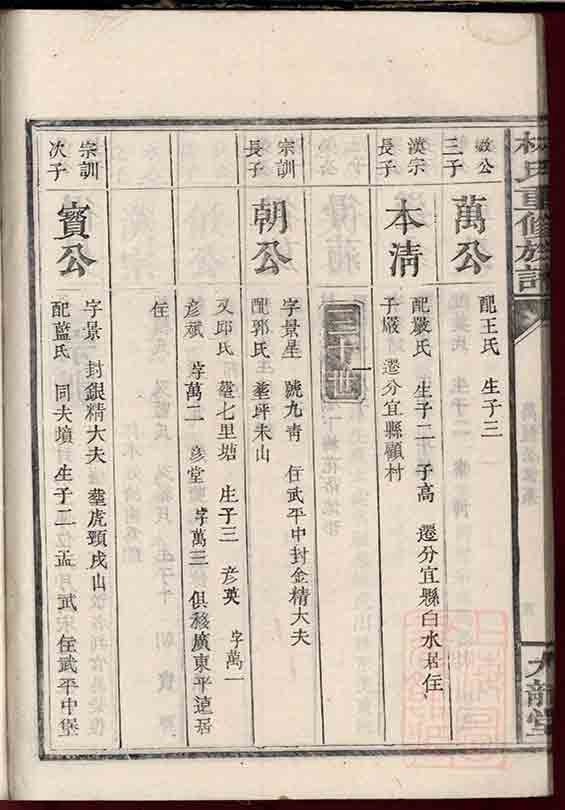 林氏重修族譜
九龍堂
敏公
三子
萬公
配王氏 生子三
漢宗
長子
本清
配嚴氏 生子二 子高 遷分宜縣白水居住
子嚴 遷分宜縣顧村
三十世
宗訓
長子
朝公
字景星 號九靑 任武平中封金精大夫
配郭氏 塟坪未山
又邱氏 塟七里塘 生子三 彦英 字萬一
彦斌 字萬二 彦堂 字萬三 俱移廣東平遠居
住
宗訓
次子
寳公
字景 封銀精大夫 塟虎頸戌山
配藍氏 同夫墳 生子二 孟 武 住武平中堡